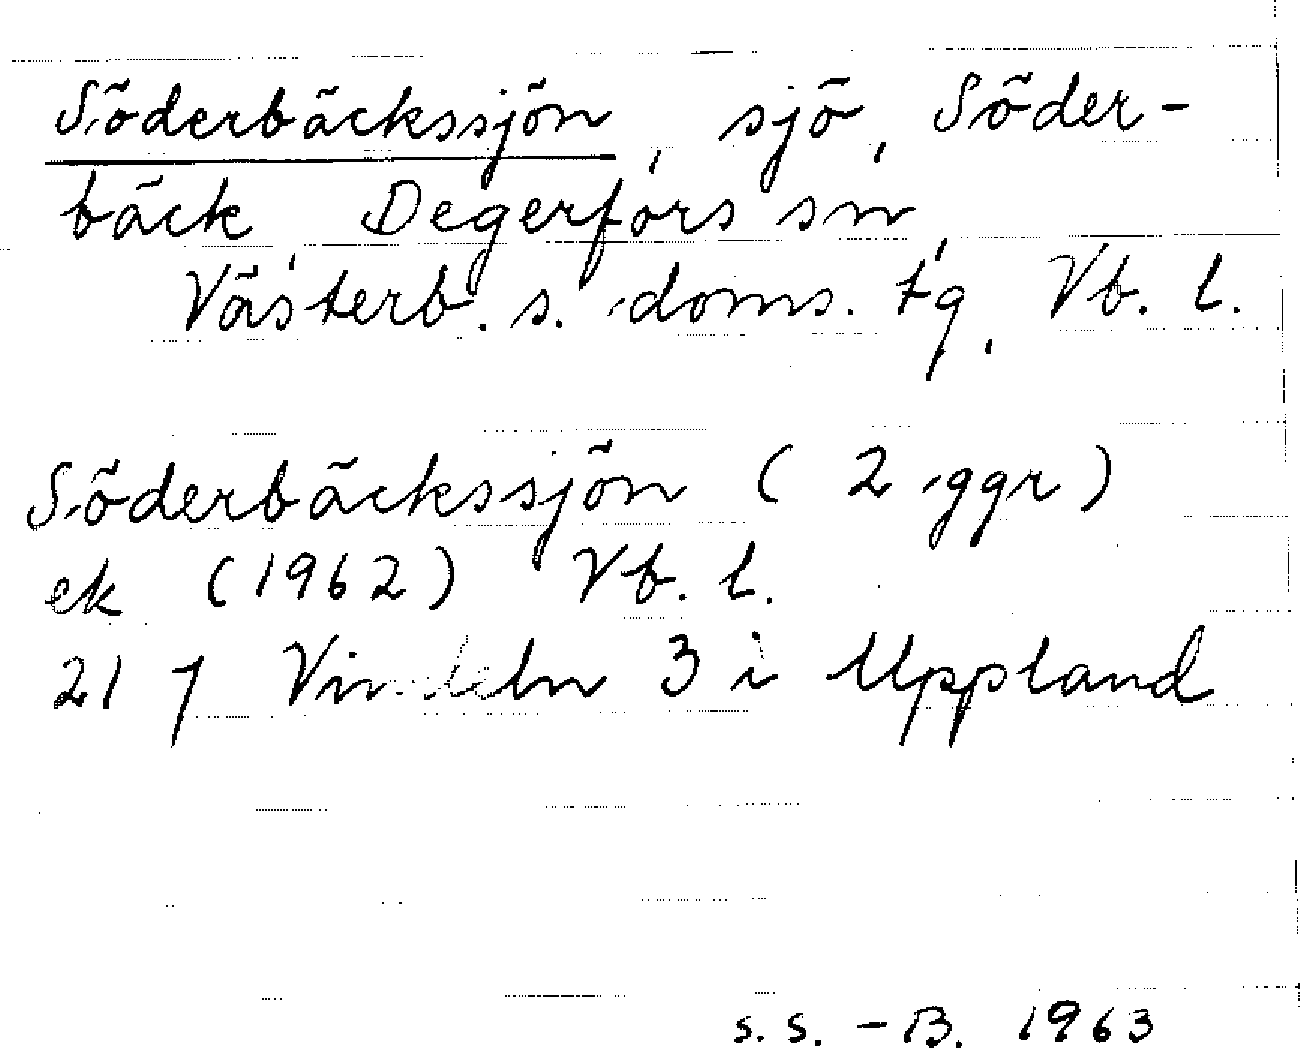 Söderbäckssjön, sjö, Söder-
bäck, Degerfors sn,
Västerb. s. doms. tg, Vb. l.
Söderbäckssjön (2 ggr)
ek (1962) Vb. l.
21 J Vindeln 3 i Uppland
s.s. - B. 1963